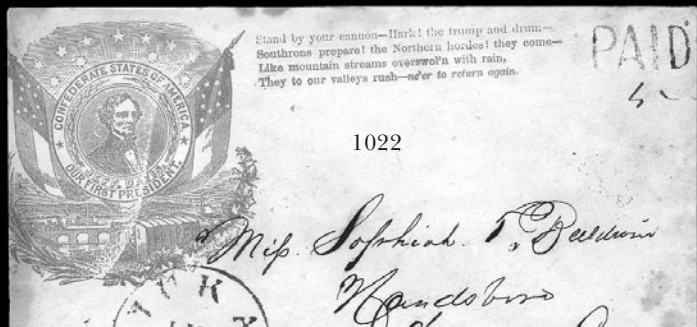 CONFEDERATE STATES OF AMERICA.
JEFF. DAVIS
OUR FIRST PRESIDENT.
Stand by your cannon—Hark! the trump and drum—
Southrons prepare! the Northern hordes! they come—
Like mountain streams overswol'n with rain,
They to our valleys rush—ne'er to return again.
PAID
5
1022
Miss. Sophiah. T. Baldwin
Handsboro